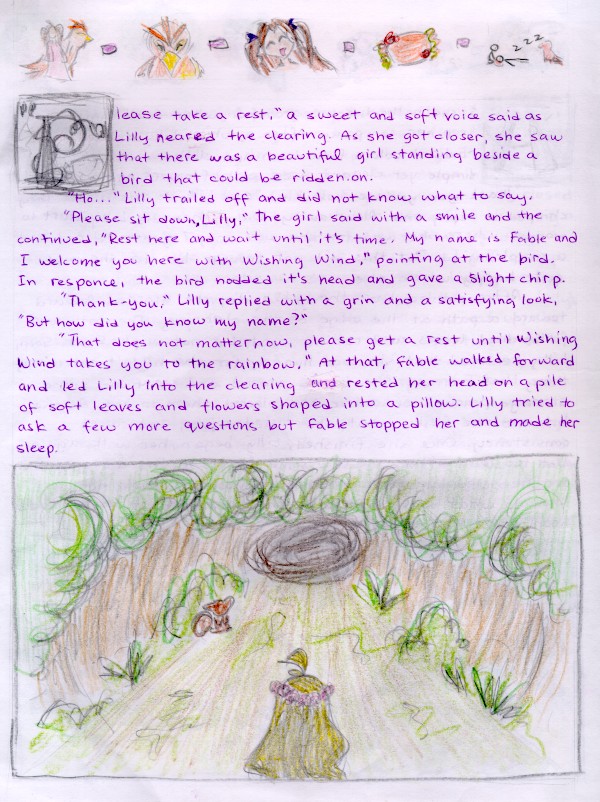 zzz
"Please take a rest," a sweet and soft voice said as
Lilly neared the clearing. As she got closer, she saw
that there was a beautiful girl standing beside a
bird that could be ridden on.
"Ho..." Lilly trailed off and did not know what to say.
"Please sit down, Lilly," The girl said with a smile and the
continued, "Rest here and wait until it's time. My name is Fable and
I welcome you here with Wishing Wind," pointing at the bird.
In responce, the bird nodded it's head and gave a slight chirp.
"Thank-you," Lilly replied with a grin and a satisfying look,
"But how did you know my name?"
"That does not matter now, please get a rest until Wishing
Wind takes you to the rainbow." At that, Fable walked forward
and led Lilly into the clearing and rested her head on a pile
of soft leaves and flowers shaped into a pillow. Lilly tried to
ask a few more questions but Fable stopped her and made her
sleep.